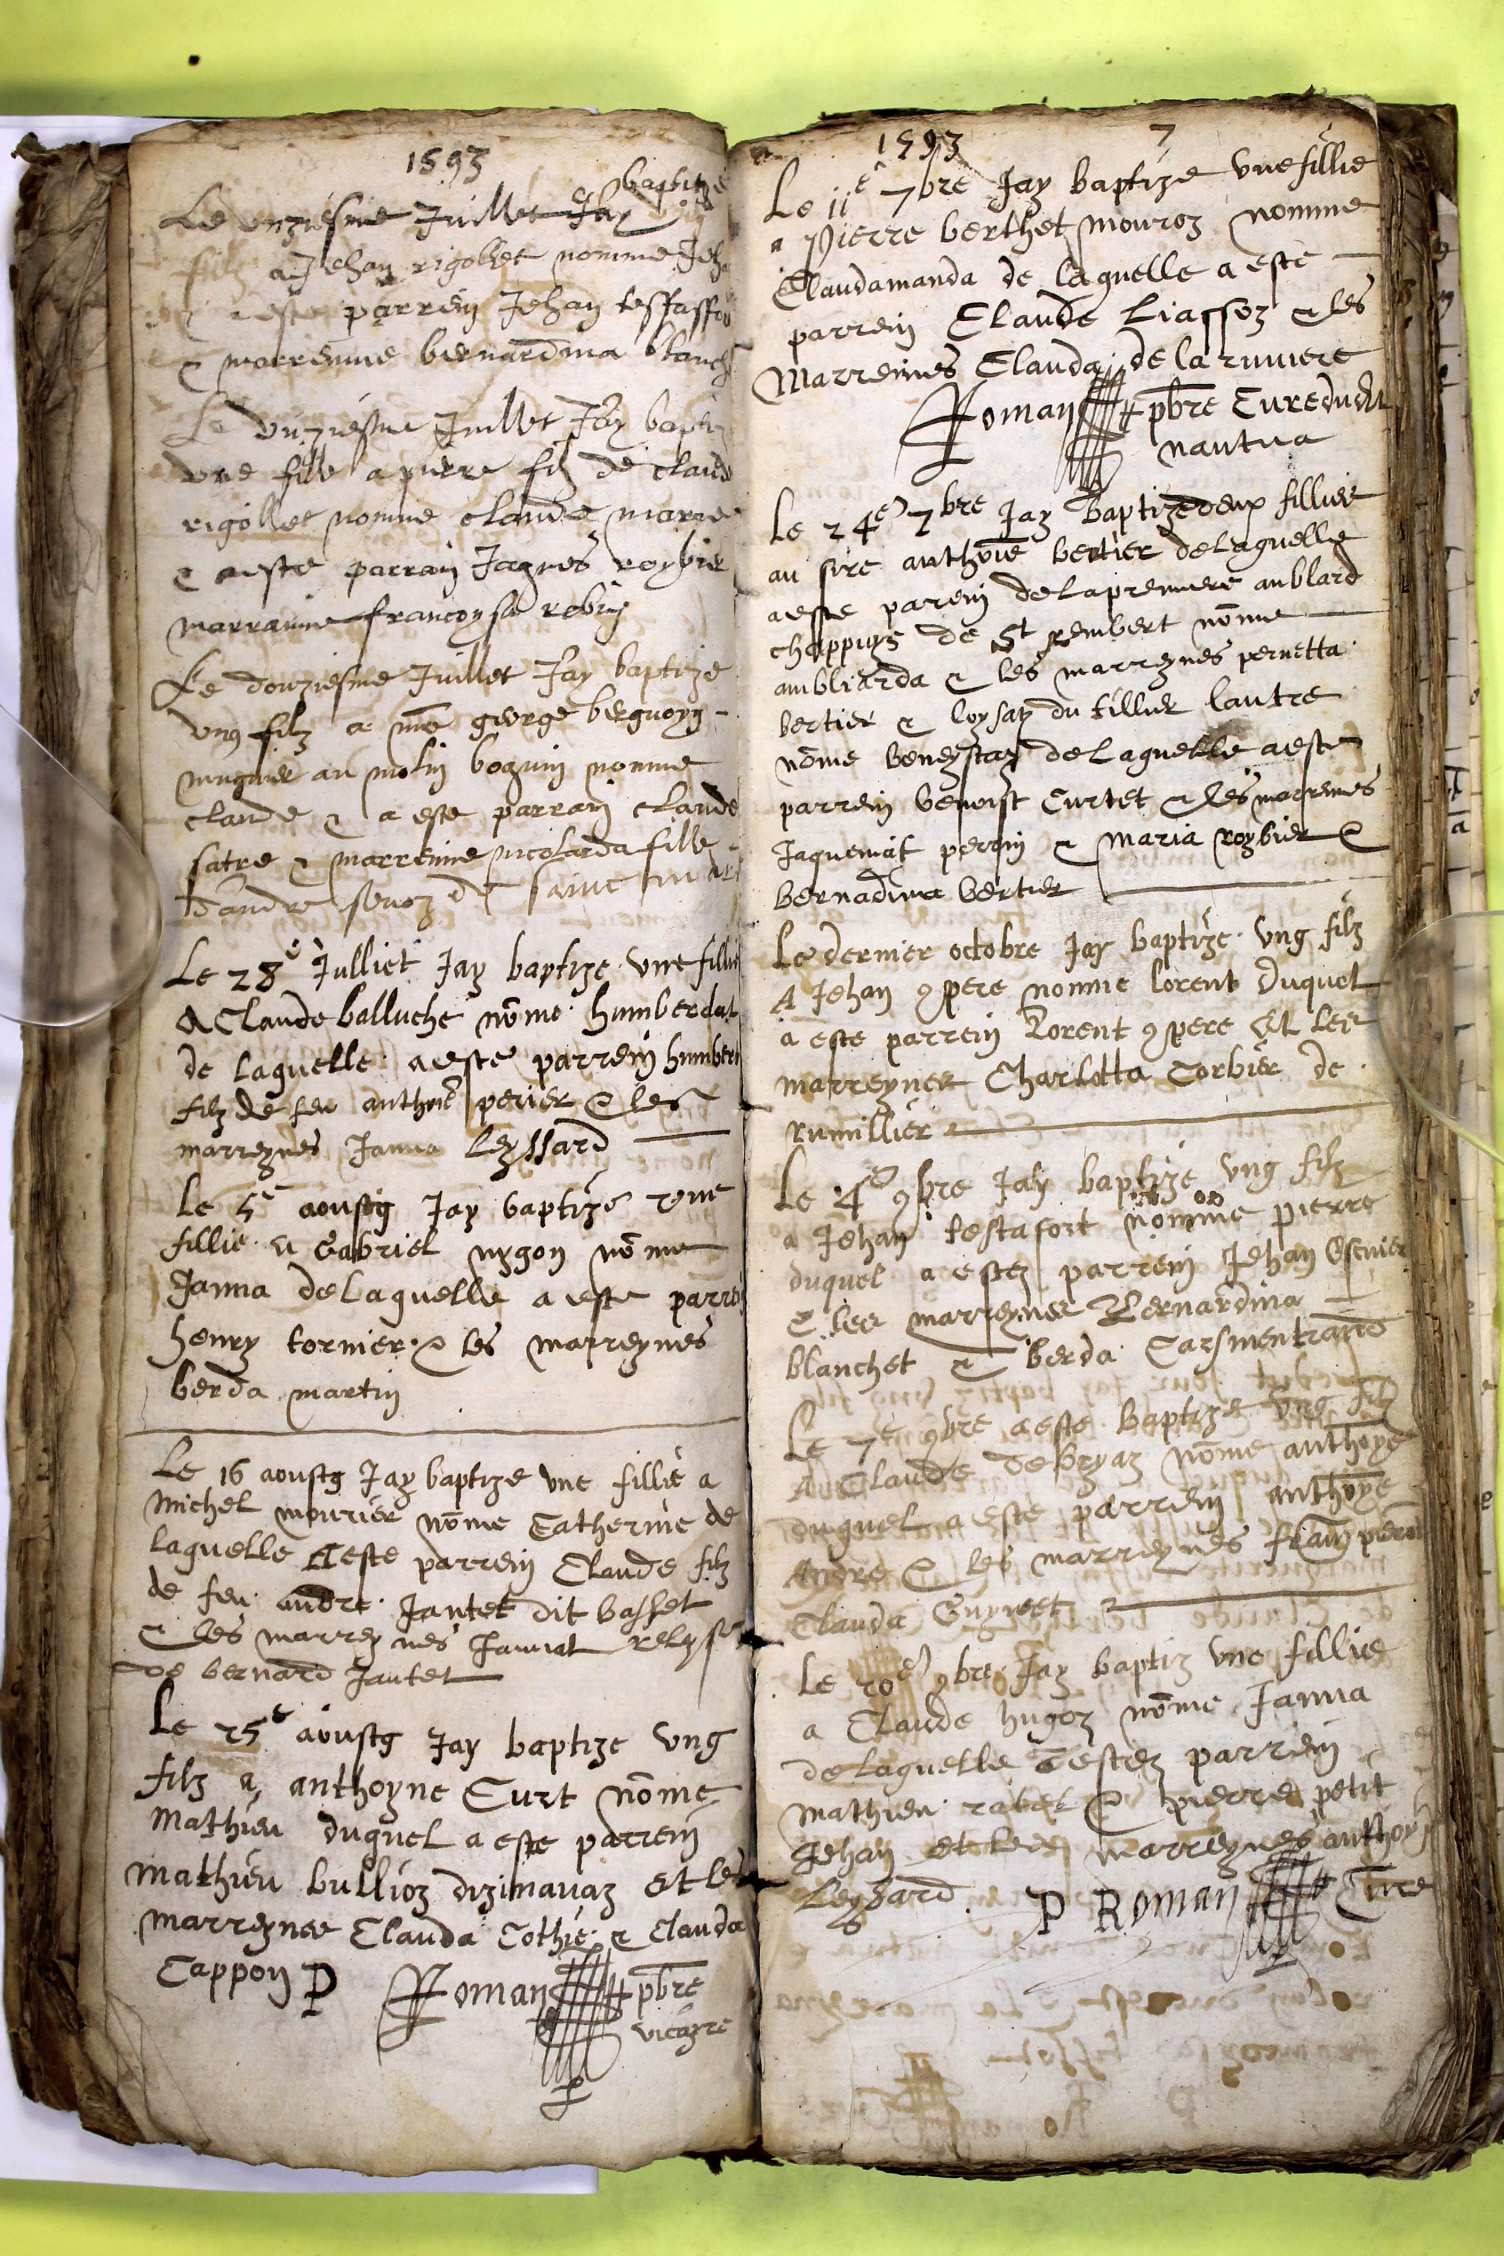 1593
baptize
Le unziesme Juillet Jay ung
filz a Jehan rigollet nomme Jeh
a este parrein Jehan testaffor
& marrenne bernardina blanch
Le unziesme Juillet Jay bapti
une fille a pierre filz de claud
rigollet nomme claude marie
& a este parrain Jaques roybier
marrainne francoysa robin
Le douziesme Juillet Jay baptize
ung filz a me george berguoyg
mugnier au molin nomme
claude & a este parrain claude
satre & marrenne nicolarda fille
dandre de sainc mart
Le 28e Julliet Jay baptize une fillie
A Claude balluche nome humberdat
de laquelle a este parrein humbert
filz de feu anthoine perier & les
marreynes Janna Leyssard
Le 5e aoustz Jay baptize une
fillie a Gabriel nygon nomme
Janna de laquelle a este parrei
henry tornier & les marreynes
berda martin
Le 16 aoustz Jay baptize une fillie a
Michel mourier nome Catherine de
laquelle a este parrein Claude filz
de feu andre Jantet dit basset
& les marreynes Jannat
de bernard Jantet
Le 25e aoustz Jay baptize ung
filz a anthoyne Curt nome
Mathieu duquel a este parrein
Mathieu bullioz dizimavaz et les
marreynes Clauda Cothie & Clauda
Cappon P Roman pbre
vicayre
1593 7
Le 11e 7bre Jay baptize une fillie
a Pierre berthet mouroz nomme
Claudamanda de laquelle a este
parrein Claude Liassoz & les
Marreines Clauda de la ruviere
Roman pbre Cure dudit
nantua
Le 24e 7bre Jay baptize deux fillies
au sire anthoine bertier de laquelle
a este parein de la premiere anblard
chappuys de St rembert nomme
ambliarda & les marreynes pernetta
bertier & loysaz du tillier lautre
nome beneystaz de laquelle a este
parrein benoist Curtet & les marreines
Jaquemat perrin & maria roybier &
bernadina bertier
Le dernier octobre Jay baptize ung filz
A Jehan 9pere nomme lorent duquel
a este parrein Lorent 9pere et les
marreynes Charlotta Corbier de
rumillier
Le 4e 9bre Jay baptize ung filz
a Jehan testafort nomme pierre
duquel a estez parrein Jehan
& les marreynes Bernardina
blanchet & berda Carsmentrand
Le 7e 9bre a este baptize ung filz
A Claude debryaz nome anthoyne
duquel a este parrein anthoyne
Andre & les marreynes
Clauda Guynet
Le 20e 9bre Jay baptiz une fillie
a Claude hugoz nome Janna
de laquelle a estez parrein
Mathieu rabet & pierre petit
Jehan et les marreynes anthoy
Leyssard P Roman Cure